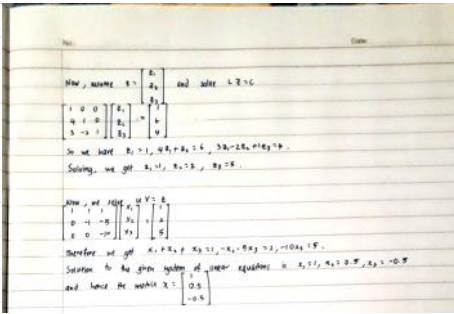 No.
Date
Now, assume z = [z₁ z₂ z₃] and solve LZ = C
[1 0 0
4 1 0
3 -2 1] [z₁ z₂ z₃] = [1 6 4]
So we have z₁ = 1, 4z₁ + z₂ = 6, 3z₁ - 2z₂ + 1z₃ = 4.
Solving, we get z₁ = 1, z₂ = 2, z₃ = 5.
Now, we solve UX = Z
[1 1 1
0 -1 -5
0 0 -10] [x₁ x₂ x₃] = [1 2 5]
Therefore we get x₁ + x₂ + x₃ = 1, -x₂ - 5x₃ = 2, -10x₃ = 5.
Solution to the given system of linear equations is x₁ = 1, x₂ = 0.5, x₃ = -0.5
and hence the matrix x = [1 0.5 -0.5]